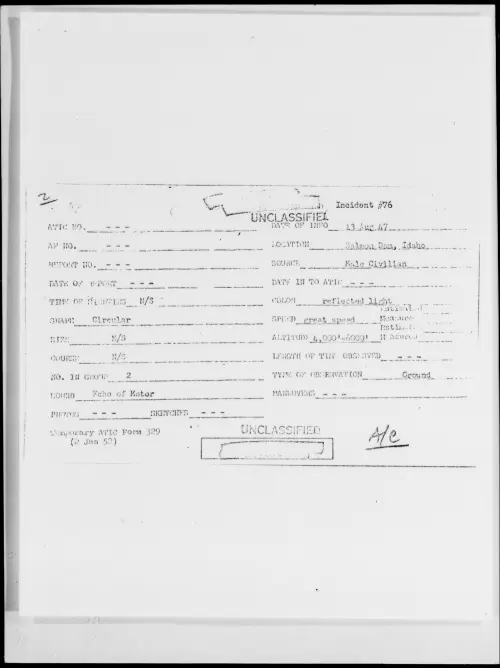 2
Incident #76
UNCLASSIFIED
ATIC NO. - - - DATE OF INFO 13 Aug 47
AF NO. - - - LOCATION Salmon Dam, Idaho
REPORT NO. - - - SOURCE Male Civilian
DATE OF REPORT - - - DATE IN TO ATIC - - -
TIME OF SIGHTING N/S COLOR reflected light
SHAPE Circular SPEED great speed
SIZE N/S ALTITUDE 4,000'-6000'
COURSE N/S LENGTH OF TIME OBSERVED - - -
NO. IN GROUP 2 TYPE OF OBSERVATION Ground
SOUND Echo of Motor MANEUVERS - - -
PHOTOS - - - SKETCHES - - -
Temporary ATIC Form 329
(2 Jan 52)
UNCLASSIFIED
A/C